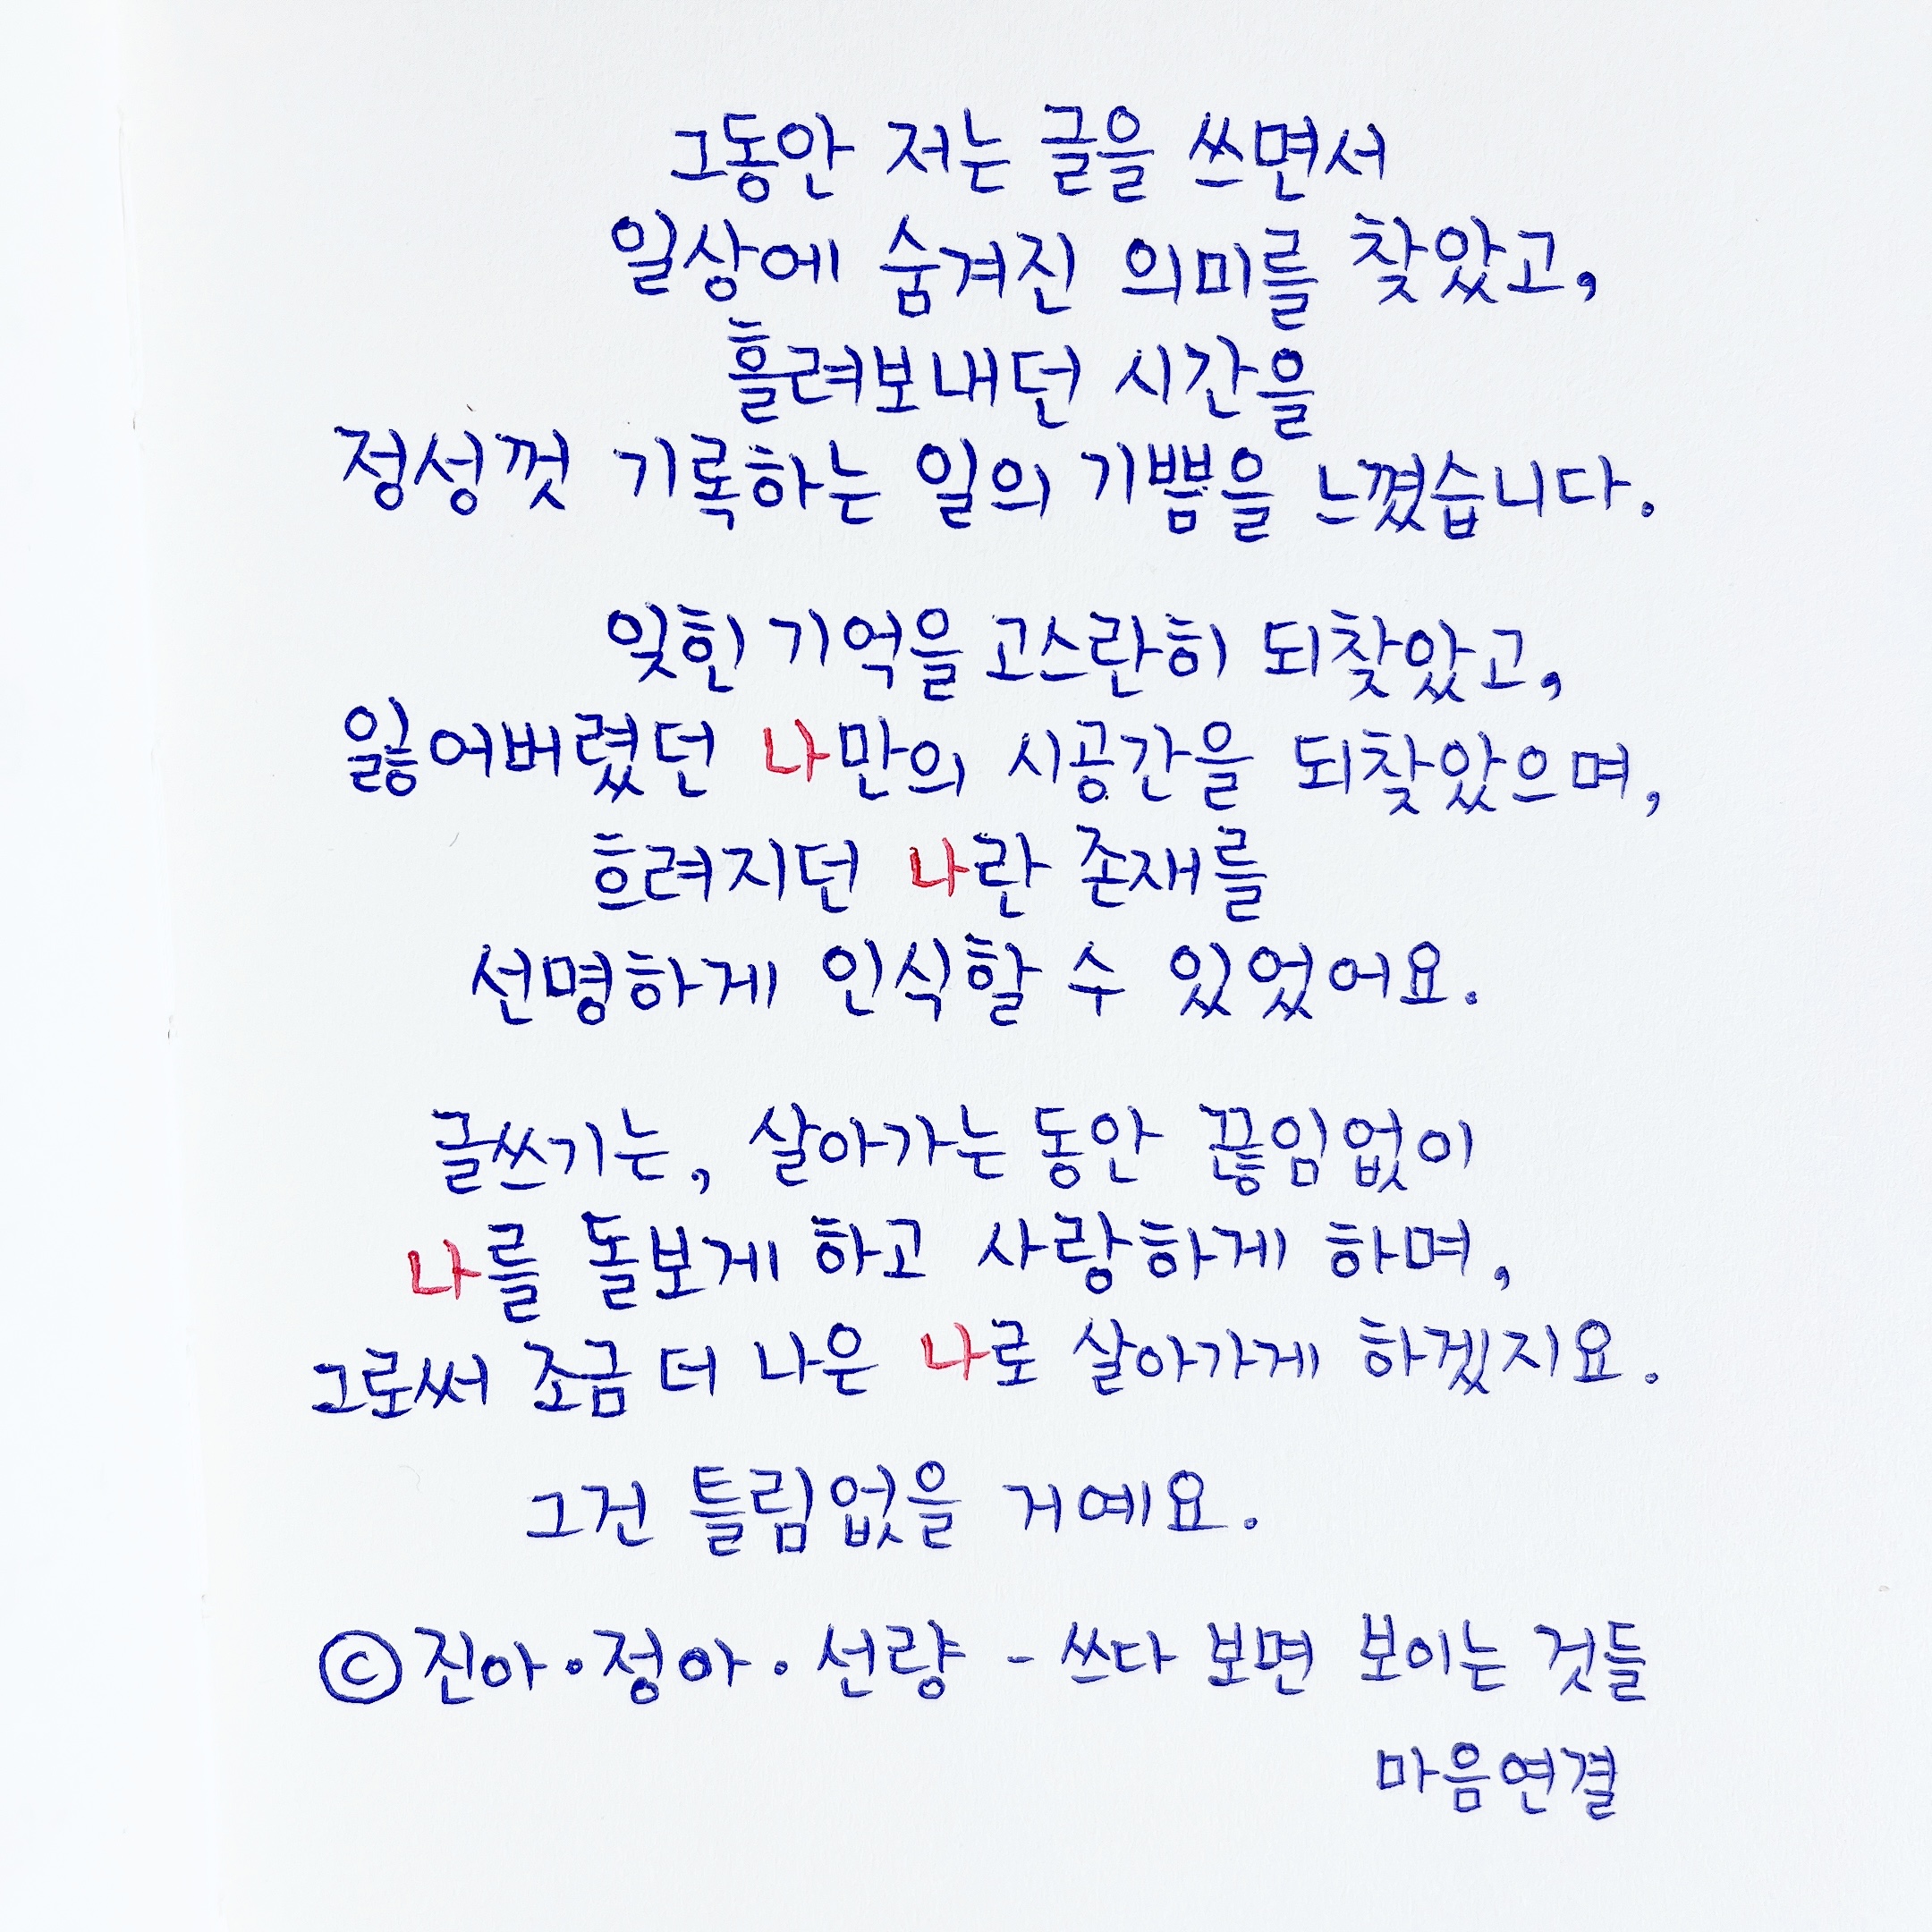 그동안 저는 글을 쓰면서
일상에 숨겨진 의미를 찾았고,
흘려보내던 시간을
정성껏 기록하는 일의 기쁨을 느꼈습니다.
잊힌 기억을 고스란히 되찾았고,
잃어버렸던 나만의 시공간을 되찾았으며,
흐려지던 나란 존재를
선명하게 인식할 수 있었어요.
글쓰기는, 살아가는 동안 끊임없이
나를 돌보게 하고 사랑하게 하며,
그로써 조금 더 나은 나로 살아가게 하겠지요.
그건 틀림없을 거예요.
©진아·정아·선량 - 쓰다 보면 보이는 것들
마음연결